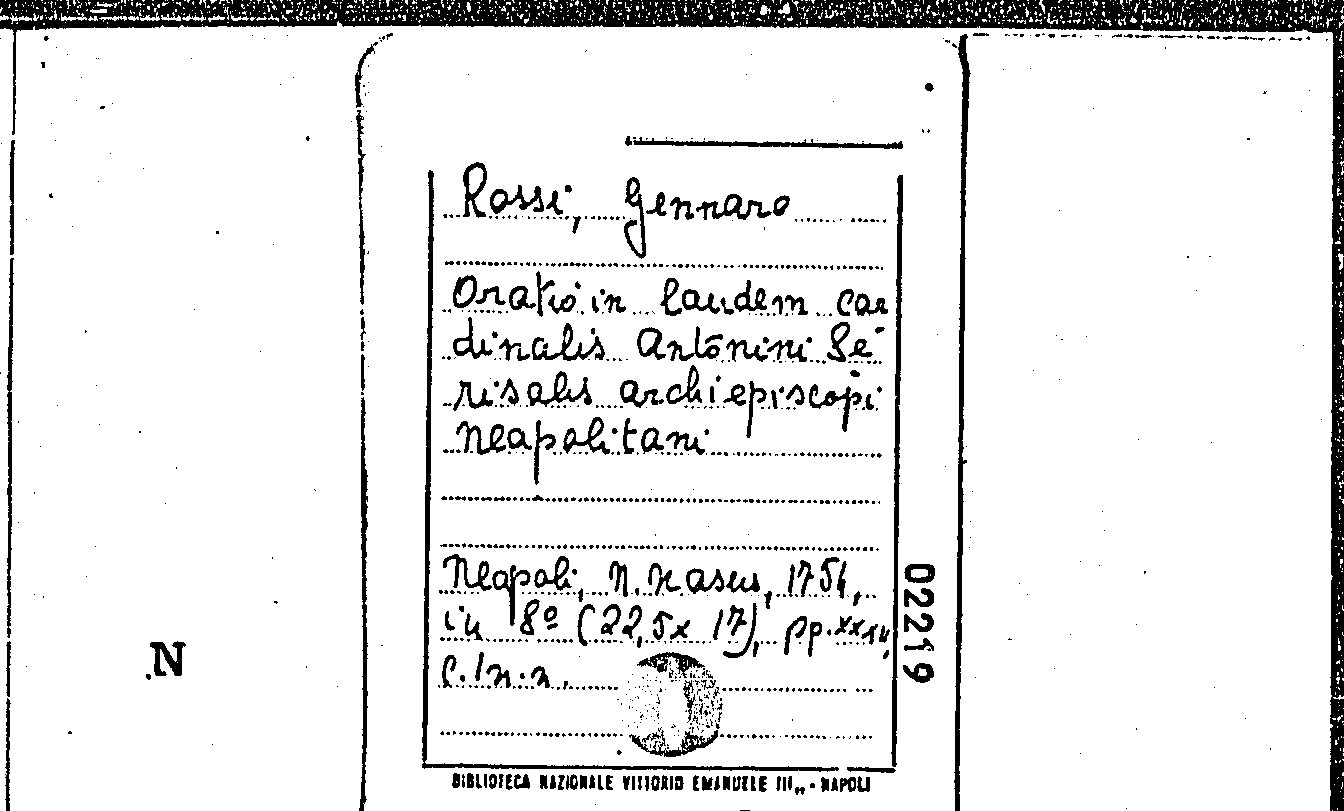 Rossi, Gennaro
Oratio in laudem car
dinalis Antonini Se
risalis archiepiscopi
Neapolitani
Neapoli, N. Nasus, 1754,
in 8º (22,5x 17), pp.
c. 1 n.n.
02219
N
BIBLIOTECA NAZIONALE VITTORIO EMANUELE III„ - NAPOLI